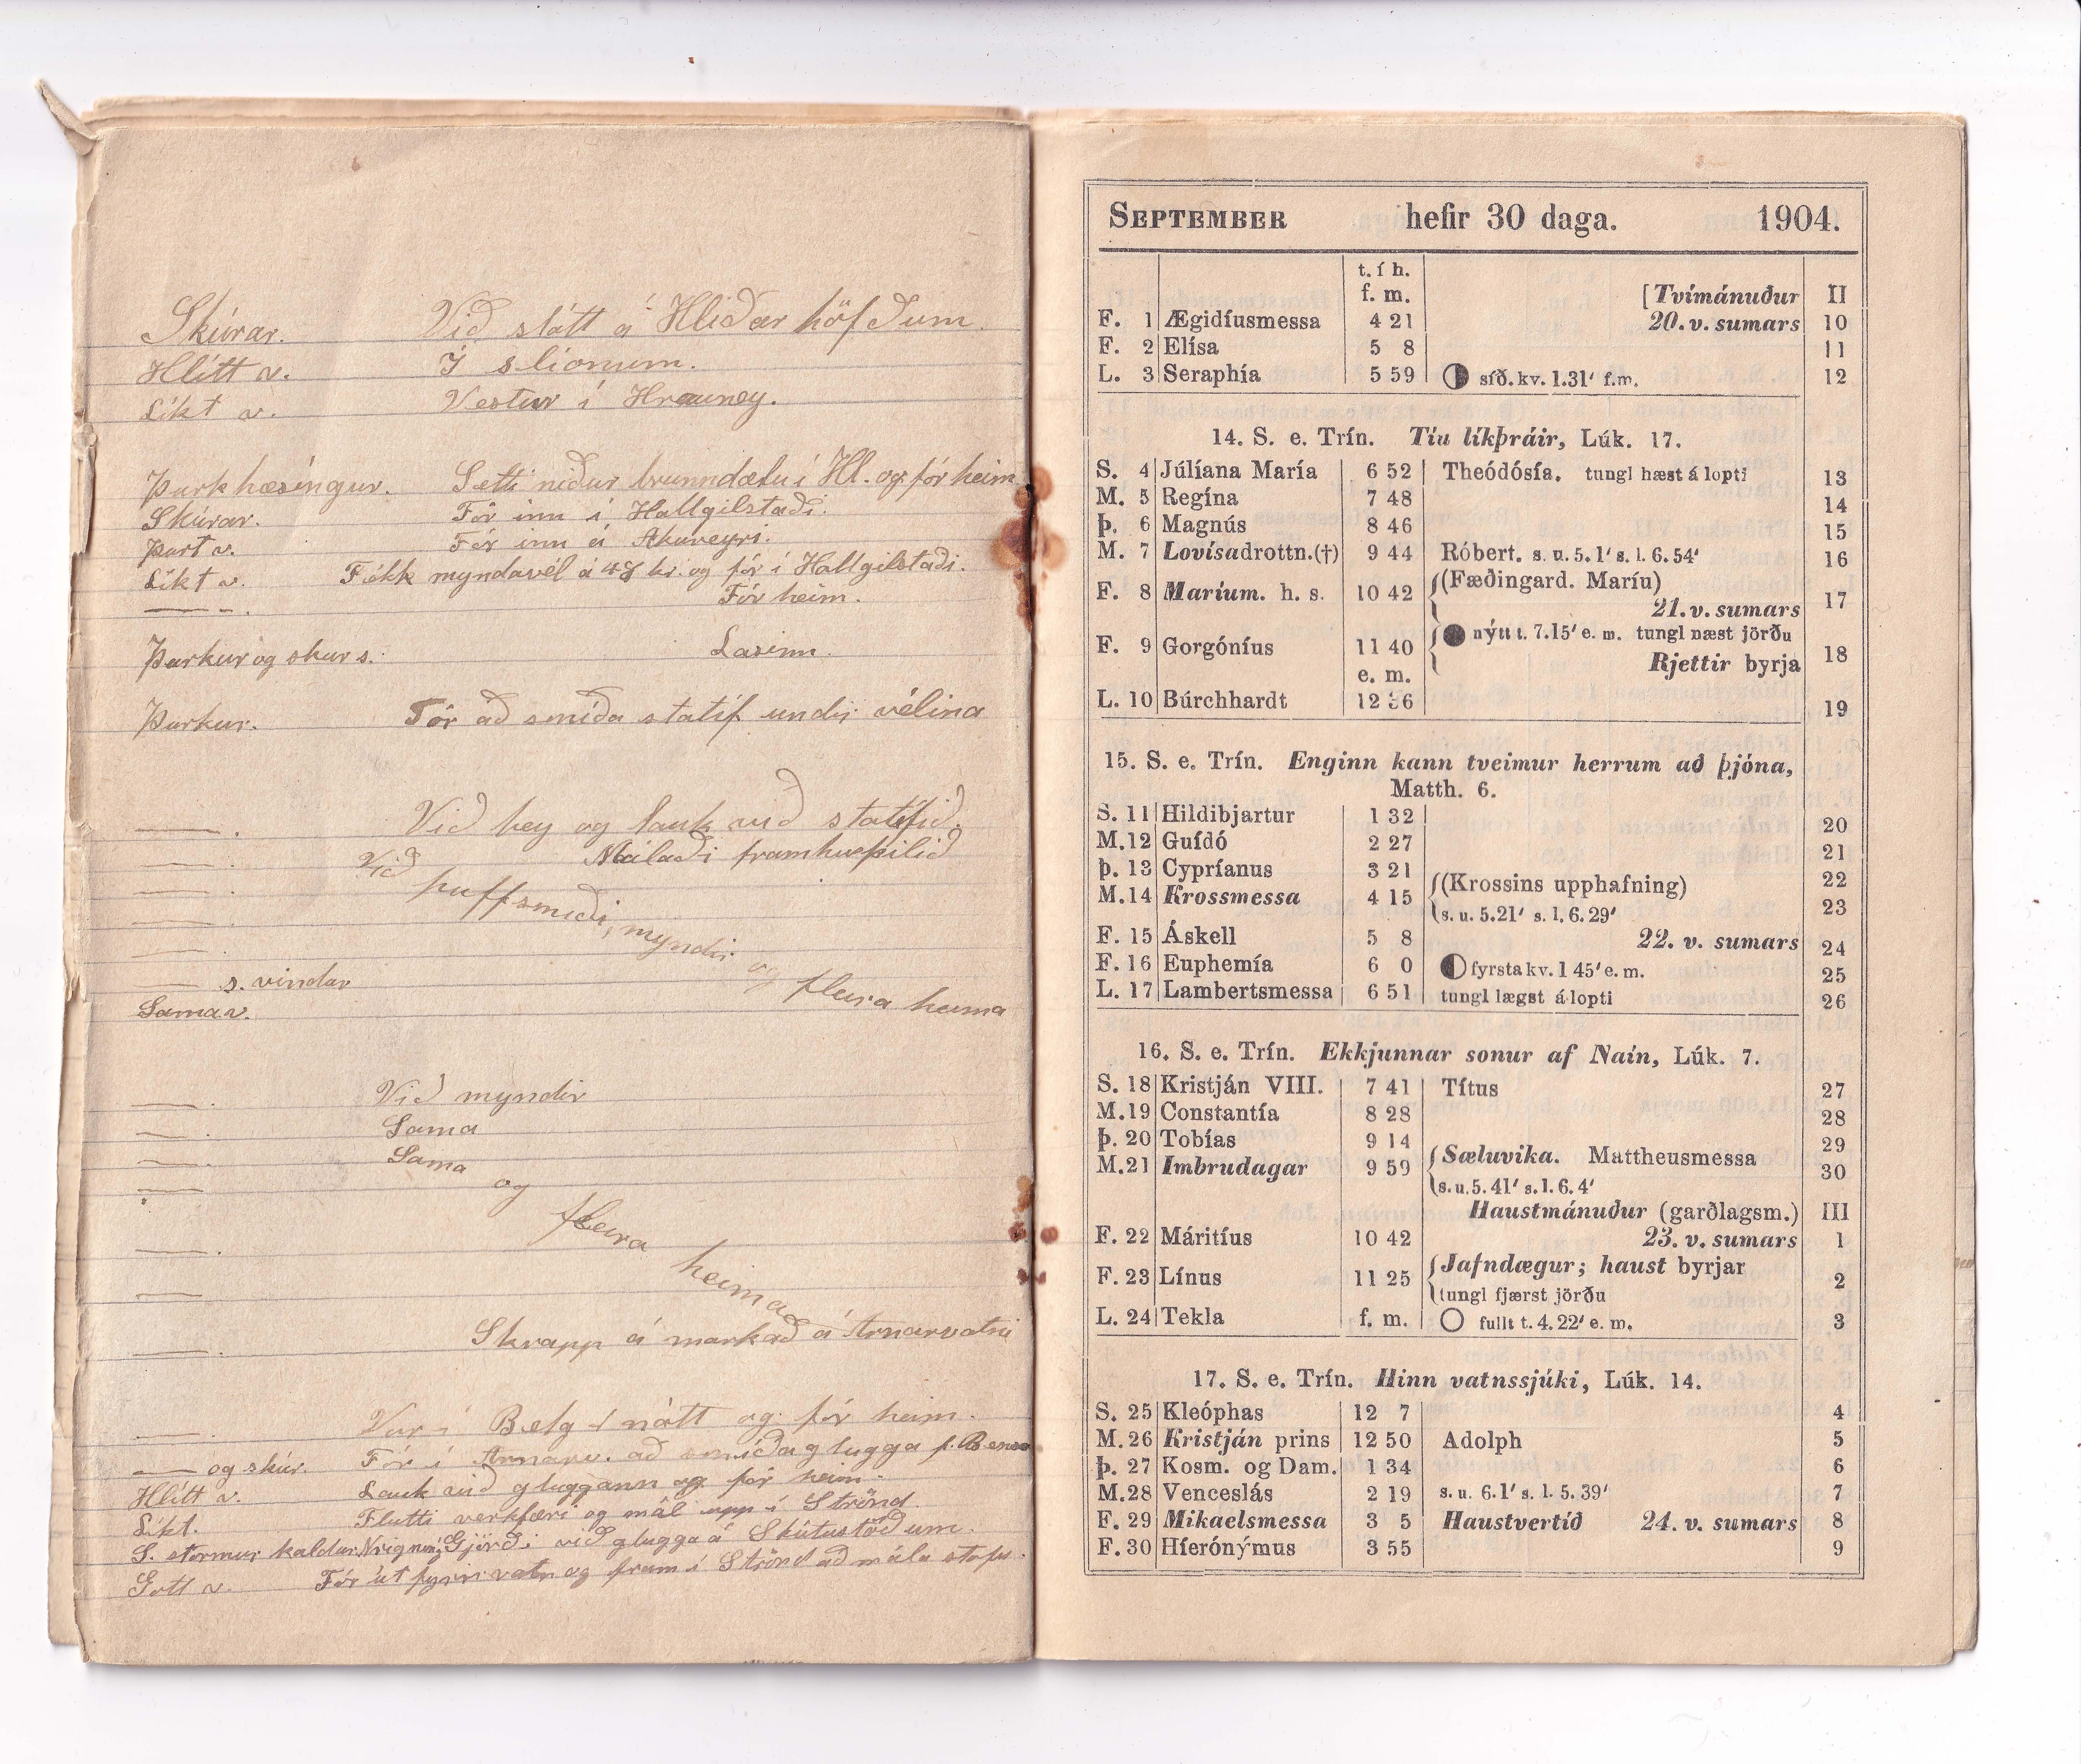 Skúrar. Við slátt á Hliðar höfðum.
Hlítt v. Í slíonum.
Líkt v. Vestur í Hrauney.
Þurkhæsingur. Setti niður brunndælu í Hl. og fór heim
Skúrar. Fór inn í Hallgilstaði.
Þurt v. Fór inn á Akureyri.
Líkt v. Fékk myndavél á 48 kr. og fór í Hallgilstaði.
—— -. Fór heim.
Þurkur og skurs. Lasinn.
Þurkur. Fór að smíða statíf undir vélina
——. Við hey og lauk við statífið.
——. Málaði framhúsþilið
——. Við puffsmiði, myndir og fleira heima
——.
——.
—— s. vindar
Sama v.
——. Við myndir
——. Sama
——. Sama
——. og fleira heima
——.
——.
——. Skrapp á markað á Arnarvatni
——. Var í Belg í nótt og fór heim.
—— og skúr. Fór í Arnarv. að smíða glugga f. Benso
Hlítt v. Lauk við gluggann og fór heim.
Líkt. Flutti verkfæri og mál upp í Strönd.
S. stormur kaldur N rigning Gjörði við glugga á Skútustöðum.
Gott v. Fór út fyrir vatn og fram í Strönd að mála stofu.
SEPTEMBER hefir 30 daga. 1904.
t. í h.
f. m. [Tvímánuður II
F. 1 Ægidíusmessa 4 21 20. v. sumars 10
F. 2 Elísa 5 8 11
L. 3 Seraphía 5 59 síð. kv. 1.31' f.m. 12
14. S. e. Trín. Tíu líkþráir, Lúk. 17.
S. 4 Júlíana María 6 52 Theódósía. tungl hæst á lopti 13
M. 5 Regína 7 48 14
Þ. 6 Magnús 8 46 15
M. 7 Lovísa drottn.(†) 9 44 Róbert. s. u. 5.1' s. l. 6.54' 16
F. 8 Maríum. h. s. 10 42 (Fæðingard. Maríu) 17
21. v. sumars
F. 9 Gorgóníus 11 40 nýtt t. 7.15' e. m. tungl næst jörðu 18
e. m. Rjettir byrja
L. 10 Búrchhardt 12 36 19
15. S. e. Trín. Enginn kann tveimur herrum að þjóna,
Matth. 6.
S. 11 Hildibjartur 1 32 20
M. 12 Guídó 2 27 21
Þ. 13 Cypríanus 3 21 22
M. 14 Krossmessa 4 15 (Krossins upphafning) 23
s. u. 5.21' s. l. 6.29'
F. 15 Áskell 5 8 22. v. sumars 24
F. 16 Euphemía 6 0 fyrsta kv. 1 45' e. m. 25
L. 17 Lambertsmessa 6 51 tungl lægst á lopti 26
16. S. e. Trín. Ekkjunnar sonur af Naín, Lúk. 7.
S. 18 Kristján VIII. 7 41 Títus 27
M. 19 Constantía 8 28 28
Þ. 20 Tobías 9 14 29
M. 21 Imbrudagar 9 59 Sæluvika. Mattheusmessa 30
s. u. 5. 41' s. l. 6. 4'
Haustmánuður (garðlagsm.) III
F. 22 Máritíus 10 42 23. v. sumars 1
F. 23 Línus 11 25 Jafndægur; haust byrjar 2
tungl fjærst jörðu
L. 24 Tekla f. m. fullt t. 4. 22' e. m. 3
17. S. e. Trín. Hinn vatnssjúki, Lúk. 14.
S. 25 Kleóphas 12 7 4
M. 26 Kristján prins 12 50 Adolph 5
Þ. 27 Kosm. og Dam. 1 34 6
M. 28 Venceslás 2 19 s. u. 6.1' s. l. 5. 39' 7
F. 29 Mikaelsmessa 3 5 Haustvertíð 24. v. sumars 8
F. 30 Híerónýmus 3 55 9